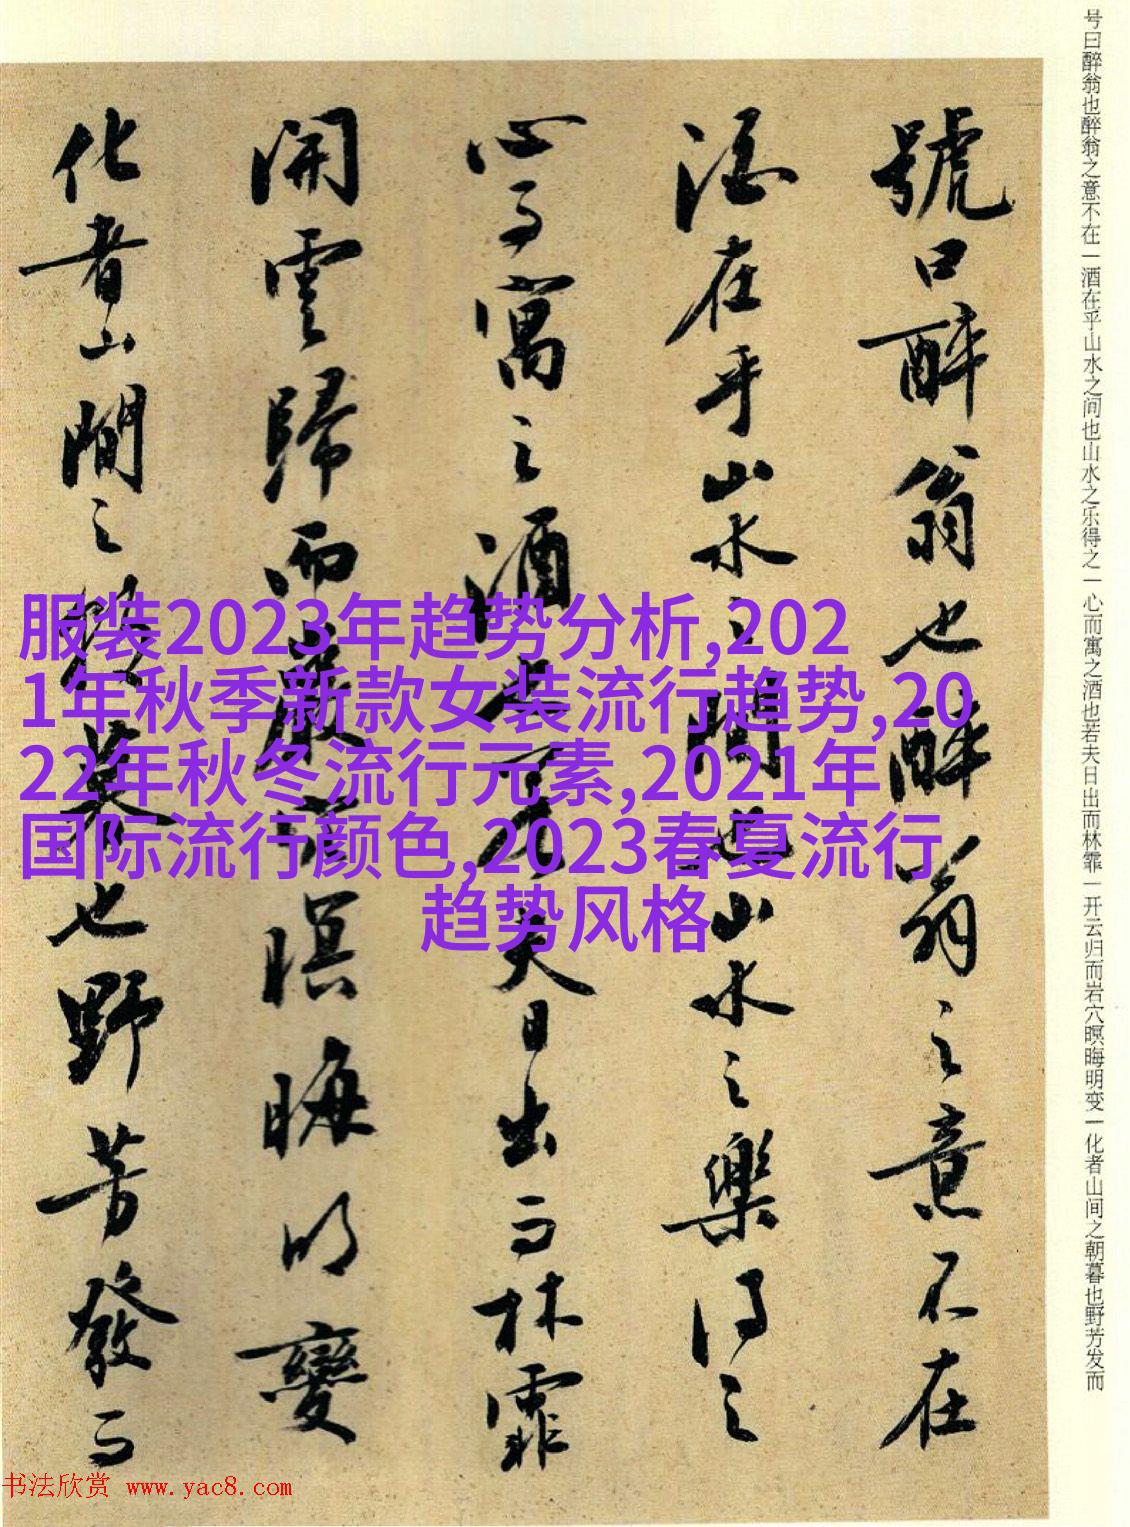 号曰醉翁也醉翁之意不在一酒在乎山水之间也山水之乐得之一心而寓之酒也若夫日出而林霏一开云归而岩穴暝晦明变一化者山间之朝暮也野芳发而
號曰醉翁也醉翁之意不在
酒在乎山水之間也山水之樂得之
心而寓之酒也若夫日出而林霏
開雲歸而巖穴暝晦明變
化者山間之朝暮也野芳發而
服装2023年趋势分析,202
1年秋季新款女装流行趋势,20
22年秋冬流行元素,2021年
国际流行颜色,2023春夏流行
趋势风格
书法欣赏 www.yac8.com